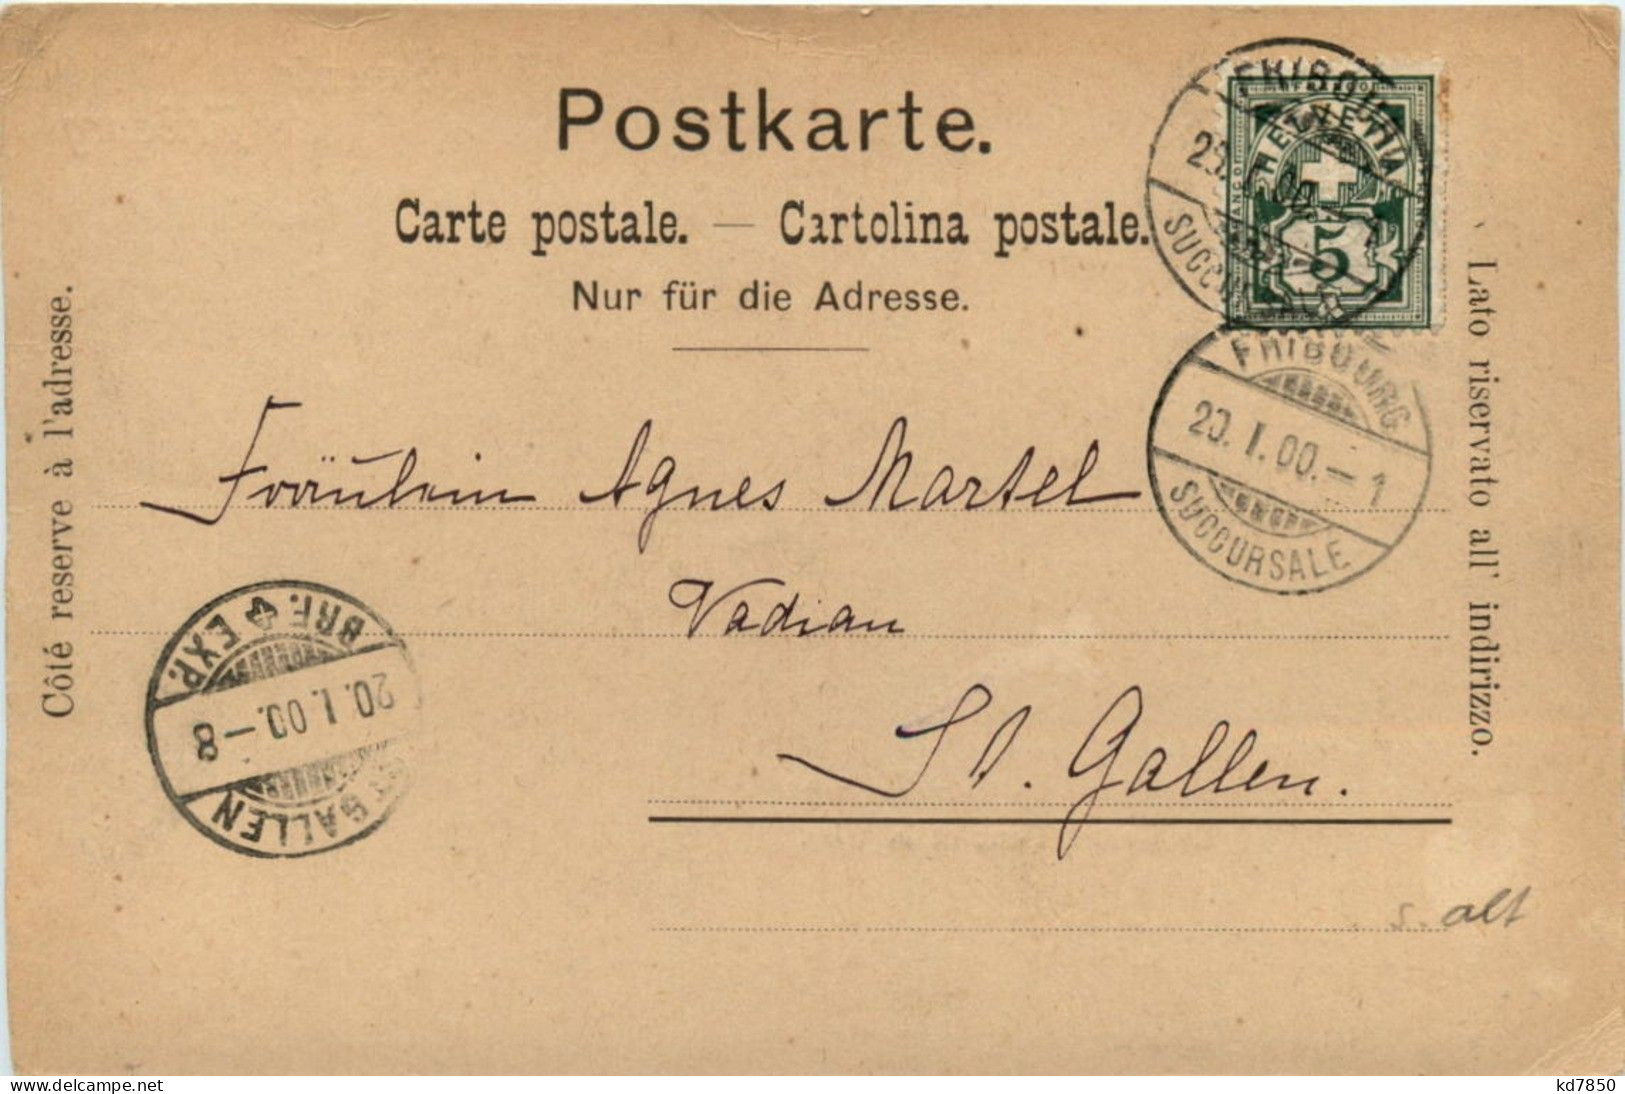 Postkarte.
Carte postale. — Cartolina postale.
Nur für die Adresse.
Côté reserve à l'adresse.
Lato riservato all' indirizzo.
HELVETIA
FRANCO
5
SUCCURSALE
FRIBOURG
20. I. 00. – 1
SUCCURSALE
Fräulein Agnes Martel
Vadian
St. Gallen.
BRF. EXP.
20. I. 00. – 8
GALLEN
alt
www.delcampe.net
kd7850